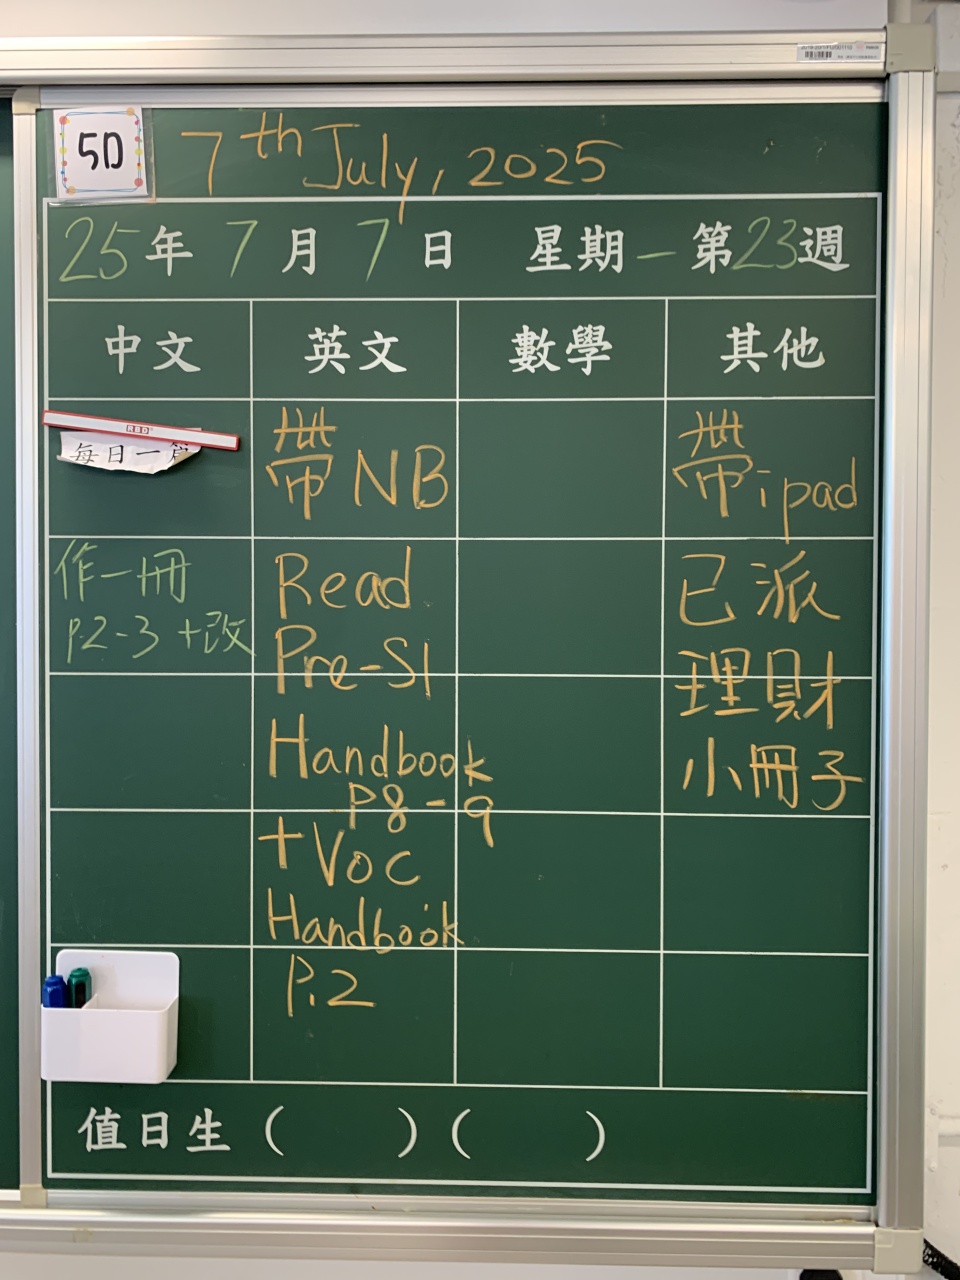 5D
7th July, 2025
25年 7月 7日 星期一 第23週
中文 英文 數學 其他
RBD
每日一篇
作一冊
p.2-3 +改
帶 NB
Read
Pre-S1
Handbook
P8-9
+ Voc
Handbook
P.2
帶 ipad
已派
理財
小冊子
值日生 ( ) ( )